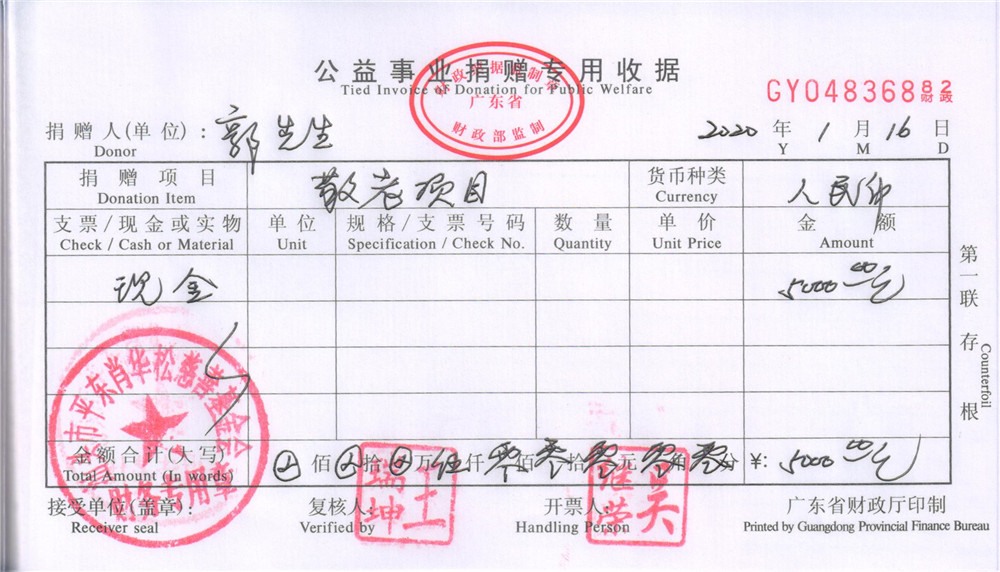 公益事业捐赠专用收据
Tied Invoice of Donation for Public Welfare
广东省
财政部监制
GY04836882
财政
捐赠人(单位)：郭先生 2020 年 1 月 16 日
Donor Y M D
捐赠项目 敬老项目 货币种类 人民币
Donation Item Currency
支票/现金或实物 单位 规格/支票号码 数量 单价 金额
Check / Cash or Material Unit Specification / Check No. Quantity Unit Price Amount
现金 5000.00元
第一联存根
Counterfoil
市平东肖华松慈善基金会
财务专用章
金额合计(大写) 佰 拾 万伍仟零佰零拾零元零角零分 ¥: 5000.00元
Total Amount (In words)
接受单位(盖章)： 复核人: 开票人: 广东省财政厅印制
Receiver seal Verified by Handling Person Printed by Guangdong Provincial Finance Bureau
王瑞坤